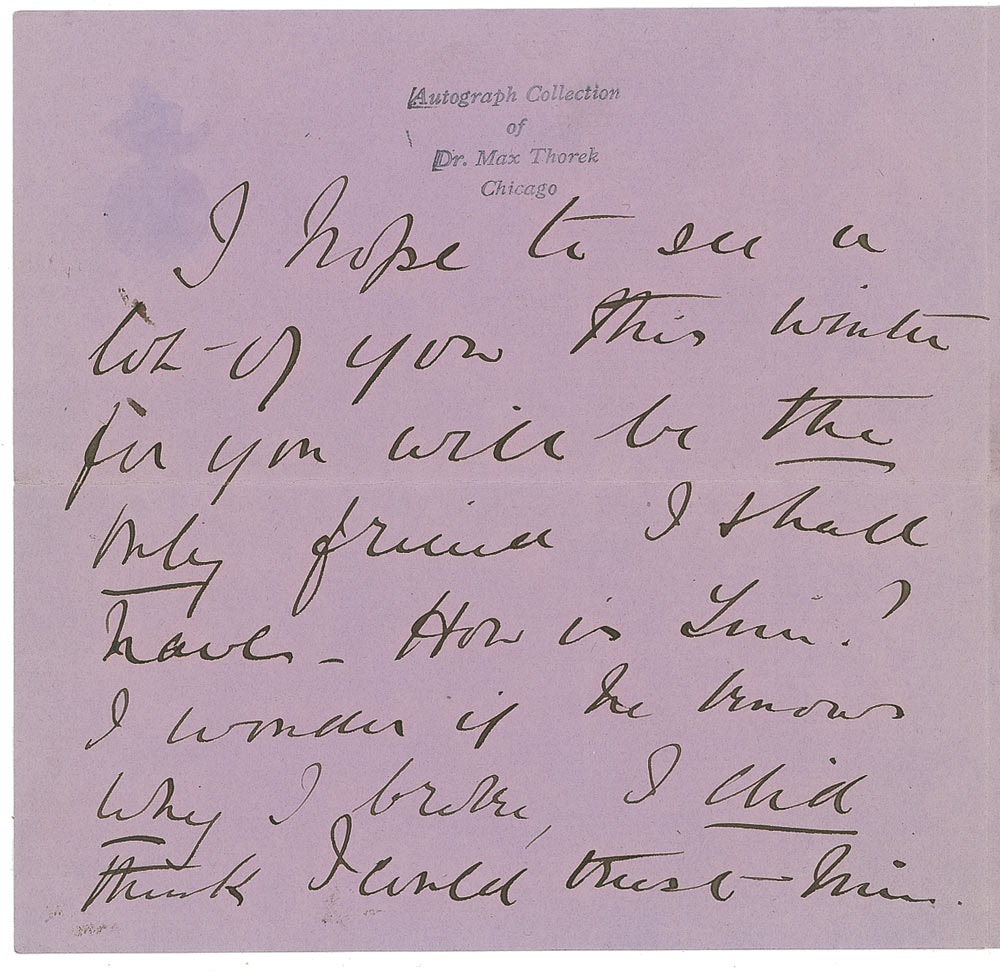 Autograph Collection
of
Dr. Max Thorek
Chicago
I hope to see a
lot of you this winter
for you will be the
only friend I shall
have - How is ?
I wonder if he knows
why I broke, I did
think I could trust him.